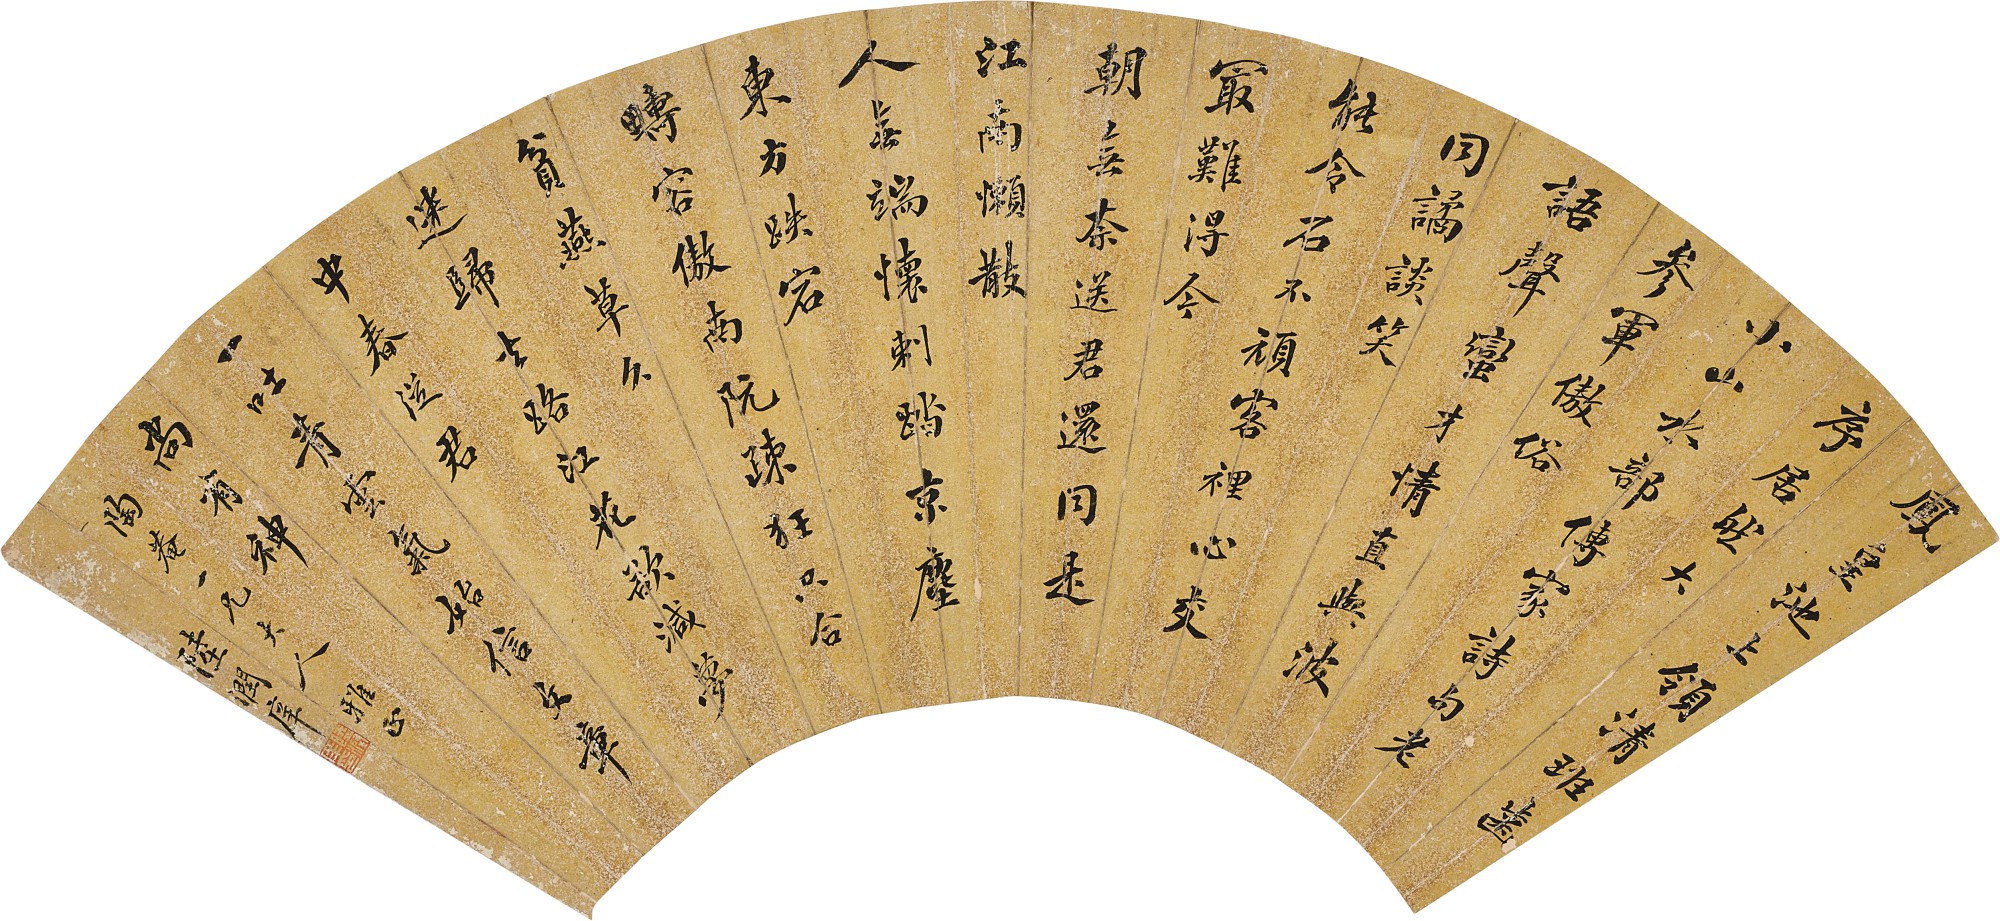 鳳皇池上領清班齒
序居然大
小山水部傳家詩句老
參軍傲俗
語聲蠻才情直與波
同譎談笑
能令石不頑客裡心交
最難得今
朝無奈送君還同是
江南懶散
人無端懷刺踏京塵
東方跌宕
轉容傲南阮疎狂只合
貧燕草久
迷歸去路江花欲減夢
中春君
一吐青雲氣始信文章
尚有神
陶菴一兄大人雅正
陸潤庠